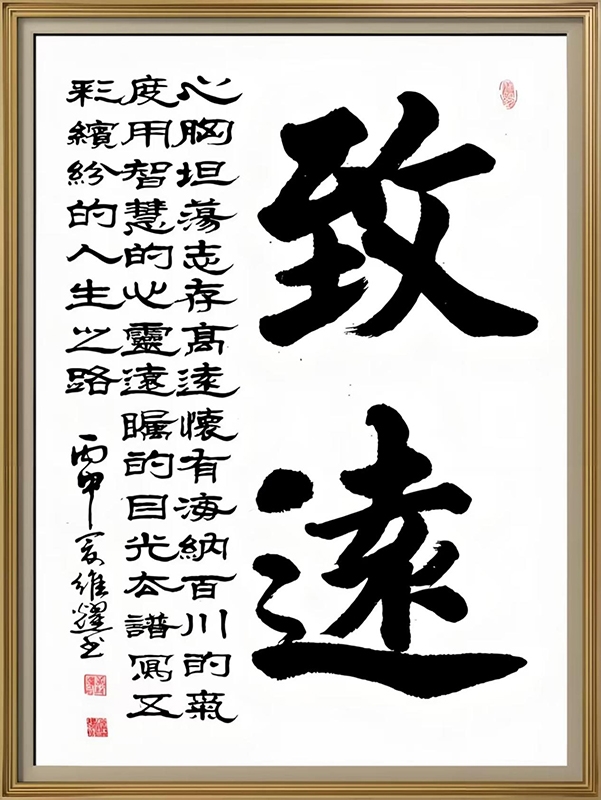 致遠
心胸坦蕩志存高遠懷有海納百川的氣
度用智慧的心靈遠矚的目光去譜寫五
彩繽紛的人生之路
丙申夏維燿书